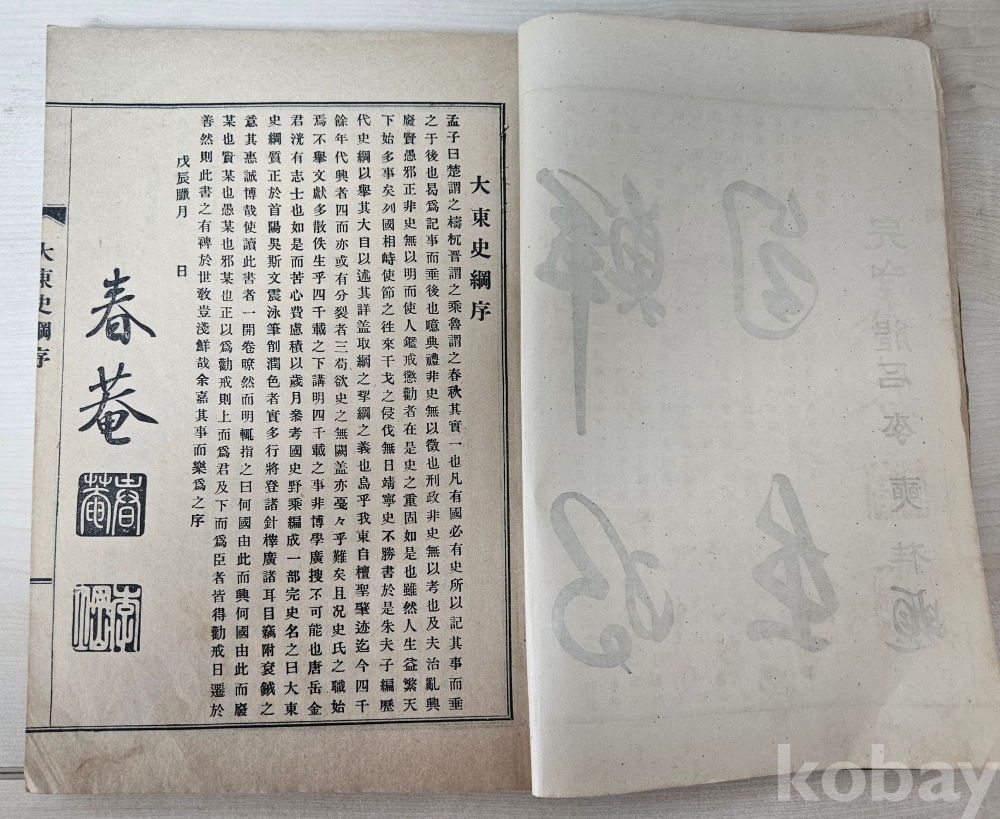 大東史綱序
孟子曰楚謂之檮杌晋謂之乘魯謂之春秋其實一也凡有國必有史所以記其事而垂
之于後也曷爲記事而垂後也噫典禮非史無以徵也刑政非史無以考也及夫治亂興
廢賢愚邪正非史無以明而使人鑑戒懲勸者在是史之重固如是也雖然人生益繁天
下始多事矣列國相峙使節之徃來干戈之侵伐無日靖寧史不勝書於是朱夫子編歷
代史綱以擧其大目以述其詳盖取網之挈綱之義也烏乎我東自檀聖肇迹迄今四千
餘年代興者四而亦或有分裂者三苟欲史之無闕盖亦戞々乎難矣且况史氏之職始
焉不擧文獻多散佚生乎四千載之下講明四千載之事非博學廣搜不可能也唐岳金
君洸有志士也如是而苦心費慮積以歲月叅考國史野乘編成一部完史名之曰大東
史綱質正於首陽吳斯文震泳筆削潤色者實多行將登諸針榟廣諸耳目竊附衮鉞之
意其惠誠博哉使讀此書者一開卷瞭然而明輒指之曰何國由此而興何國由此而廢
某也賢某也愚某也邪某也正以爲勸戒則上而爲君及下而爲臣者皆得勸戒日遷於
善然則此書之有裨於世敎豈淺鮮哉余嘉其事而樂爲之序
戊辰臘月　日
春菴
春菴
大東史綱序
kobay